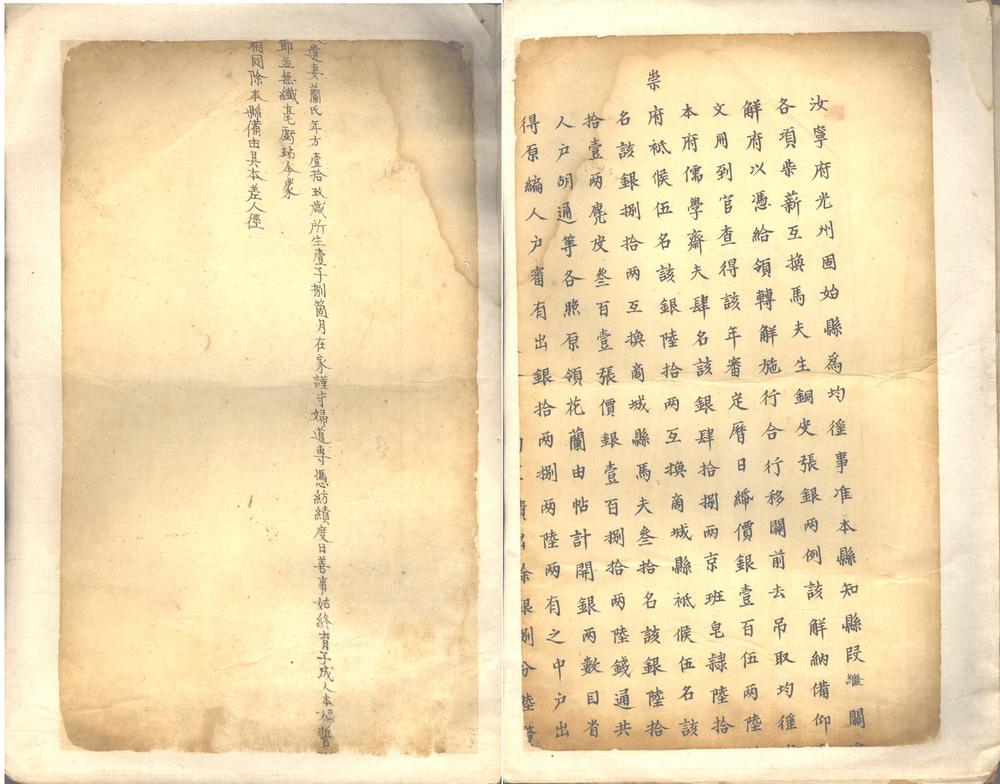 汝寧府光州固始縣為均徭事准本縣知縣段繼關
各項柴薪互換馬夫生銅皮張銀兩例該解納備仰
解府以憑給領轉解施行合行移關前去吊取均徭
文冊到官查得該年審定曆日綿價銀壹百伍兩陸
本府儒學齋夫肆名該銀肆拾捌兩京班皂隸陸拾
崇府祇候伍名該銀陸拾兩互換商城縣祇候伍名該
名該銀捌拾兩互換商城縣馬夫叁拾名該銀陸拾
拾壹兩麂皮叁百壹張價銀壹百捌拾兩陸錢通共
人户胡通等各照原領花蘭由帖計開銀兩數目省
得原編人户審有出銀拾兩捌兩陸兩有之中户出
遺妻蘭氏年方壹拾玖歲所生壹子捌箇月在家謹守婦道專憑紡績度日善事姑終育子成人本婦誓
耶並無纖毫虧玷今蒙
相同除本縣備由具本差人徑